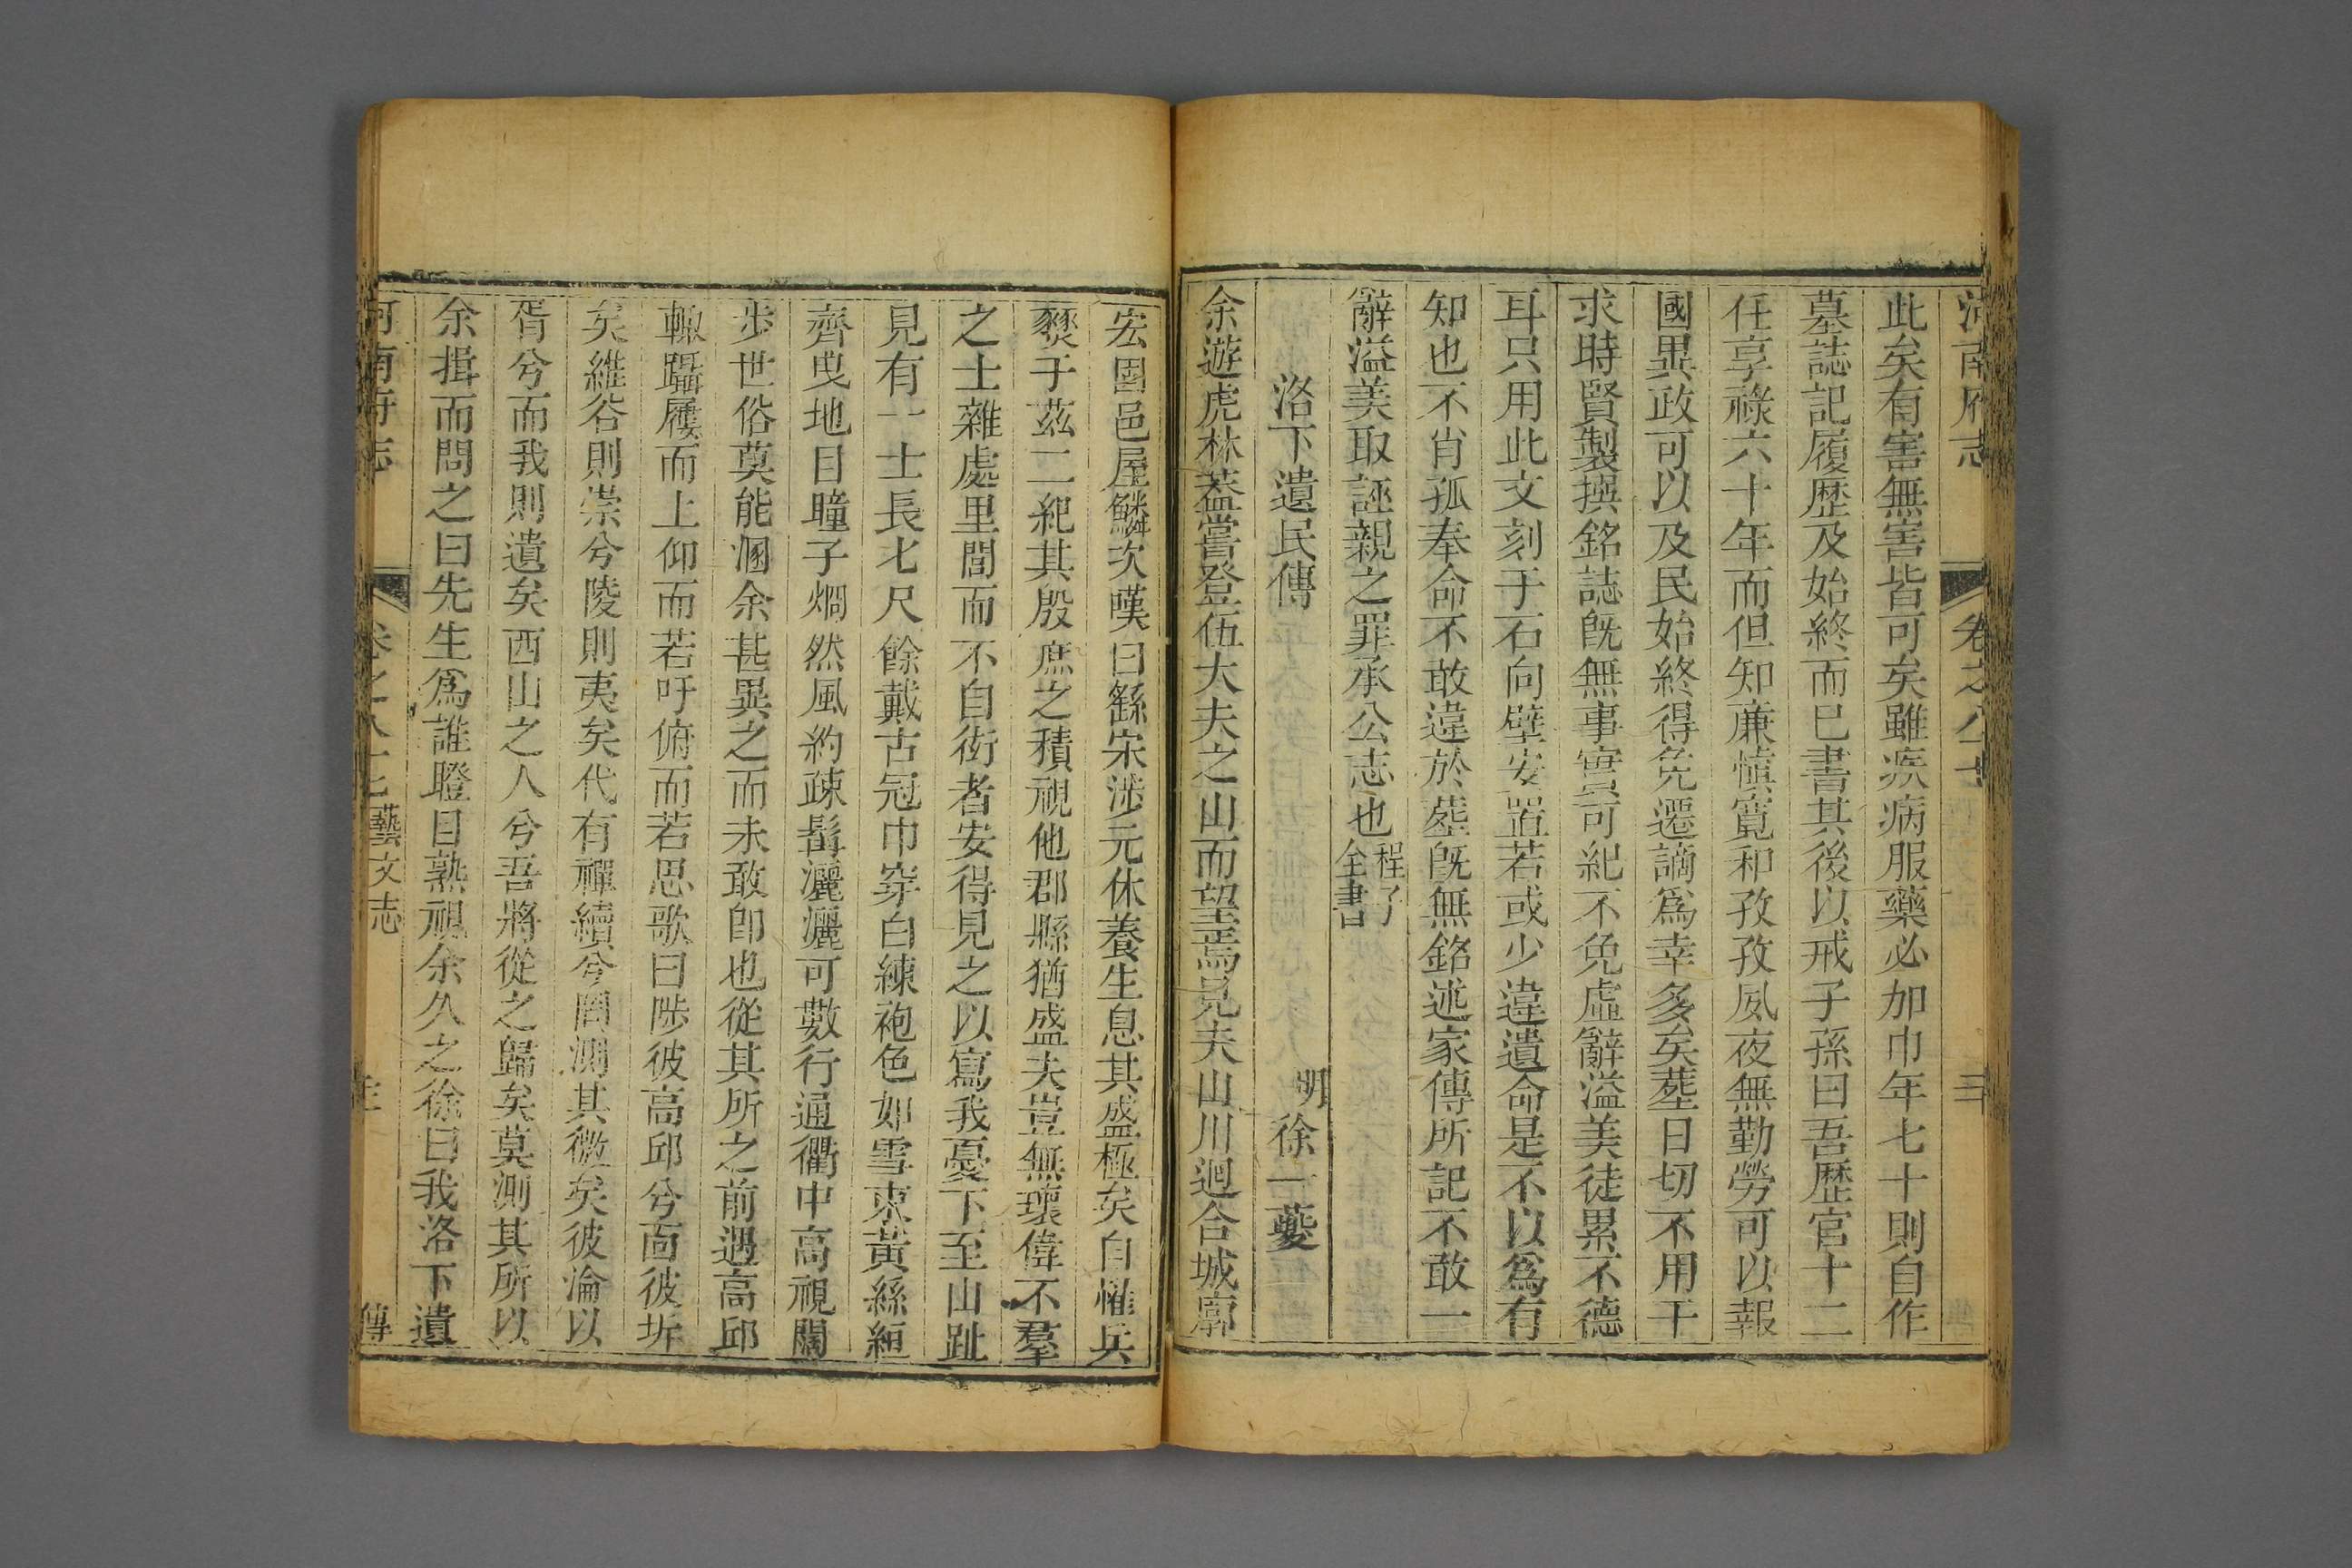 河南府志 卷之八十 三
此矣有害無害皆可矣雖疾病服藥必加巾年七十則自作
墓誌記履歷及始終而已書其後以戒子孫曰吾歷官十二
任享祿六十年而但知亷慎寬和孜孜夙夜無勤勞可以報
國異政可以及民始終得免遷謫爲幸多矣葬日切不用干
求時賢製撰銘誌旣無事實可紀不免虛辭溢美徒累不德
耳只用此文刻于石向壁安置若或少違遺命是不以爲有
知也不肖孤奉命不敢違於葬旣無銘述家傳所記不敢一
辭溢美取誣親之罪承公志也程子全書
洛下遺民傳 明徐一夔
余遊虎林蓋嘗登伍大夫之山而望焉見夫山川迴合城廓
宏固邑屋鱗次嘆曰繇宋涉元休養生息其盛極矣自罹兵
燹于茲二紀其殷庶之積視他郡縣猶盛夫豈無瓌偉不羣
之士雜處里閭而不自衒者安得見之以寫我憂下至山趾
見有一士長七尺餘戴古冠巾穿白練袍色如雪束黃絲絙
齊曳地目瞳子烱然風約疎髯灑灑可數行通衢中高視闊
步世俗莫能溷余甚異之而未敢卽也從其所之前遇高邱
輒躡屨而上仰而若吁俯而若思歌曰陟彼高邱兮面彼圻
矣維谷則崇兮陵則夷矣代有禪續兮閟測其微矣彼淪以
胥兮而我則遺矣西山之人兮吾將從之歸矣莫測其所以
余揖而問之曰先生爲誰瞪目熟視余久之徐曰我洛下遺
河南府志 卷之八十七藝文志 三 傳